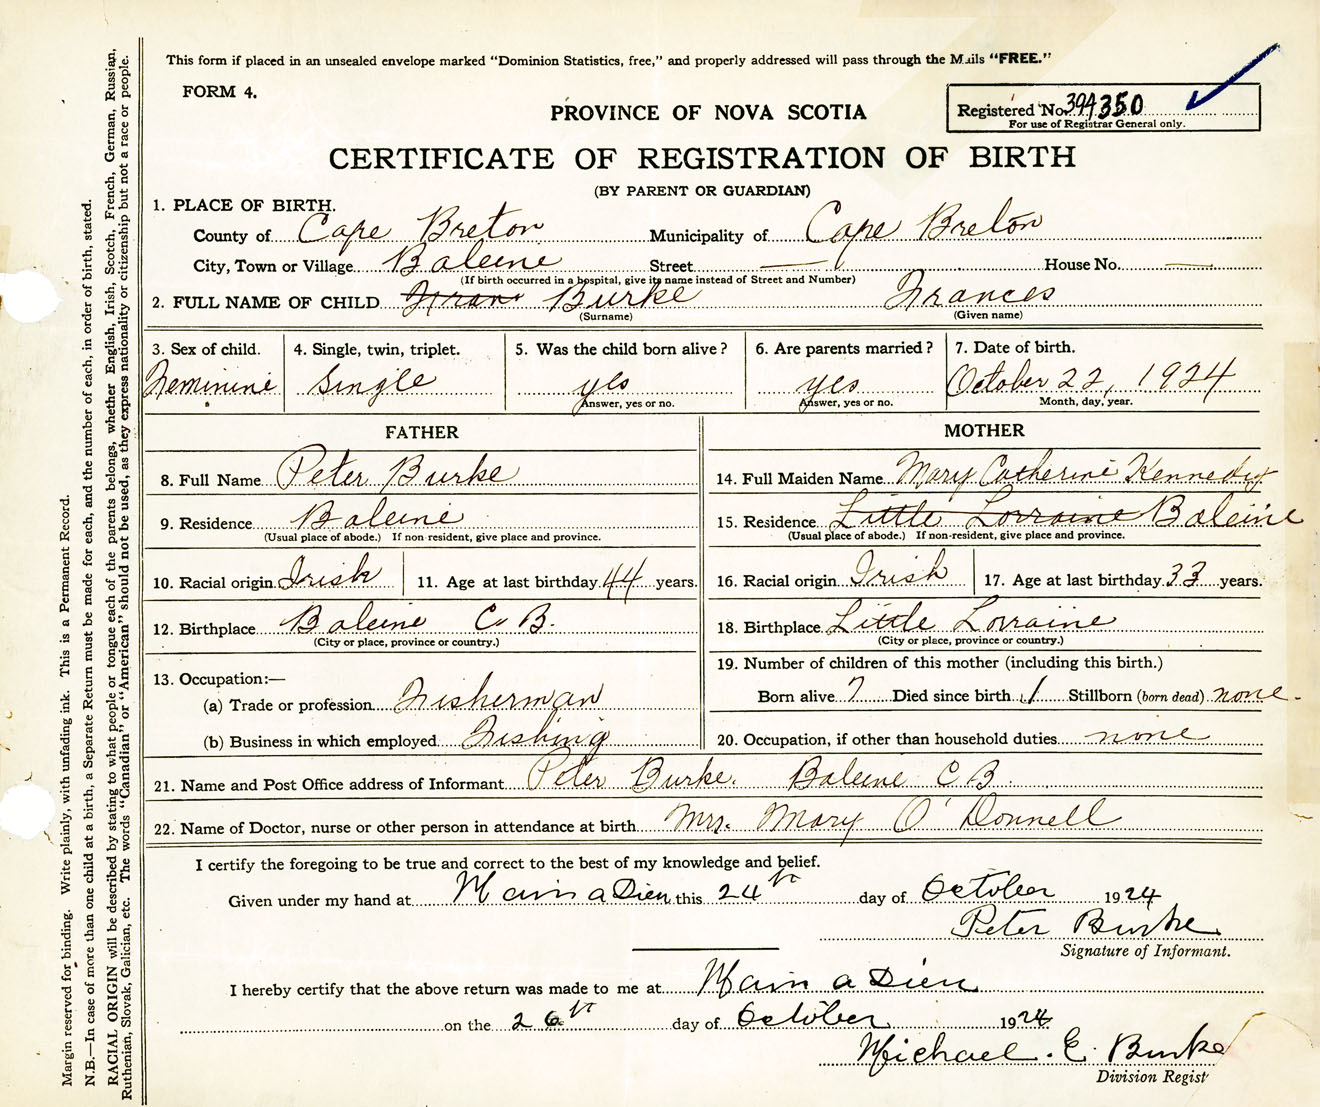 This form if placed in an unsealed envelope marked "Dominion Statistics, free," and properly addressed will pass through the Mails "FREE."
FORM 4.
PROVINCE OF NOVA SCOTIA
Registered No. 394350
For use of Registrar General only.
CERTIFICATE OF REGISTRATION OF BIRTH
(BY PARENT OR GUARDIAN)
1. PLACE OF BIRTH.
County of Cape Breton Municipality of Cape Breton
City, Town or Village Baleine Street — House No. —
(If birth occurred in a hospital, give its name instead of Street and Number)
2. FULL NAME OF CHILD Burke Frances
(Surname) (Given name)
3. Sex of child. 4. Single, twin, triplet. 5. Was the child born alive? 6. Are parents married? 7. Date of birth.
Feminine Single yes yes October 22, 1924
Answer, yes or no. Answer, yes or no. Month, day, year.
FATHER MOTHER
8. Full Name Peter Burke 14. Full Maiden Name Mary Catherine Kennedy
9. Residence Baleine 15. Residence Little Lorraine Baleine
(Usual place of abode.) If non-resident, give place and province. (Usual place of abode.) If non-resident, give place and province.
10. Racial origin Irish 11. Age at last birthday 44 years. 16. Racial origin Irish 17. Age at last birthday 33 years.
12. Birthplace Baleine C. B. 18. Birthplace Little Lorraine
(City or place, province or country.) (City or place, province or country.)
13. Occupation:— 19. Number of children of this mother (including this birth.)
(a) Trade or profession Fisherman Born alive 7 Died since birth 1 Stillborn (born dead) none.
(b) Business in which employed Fishing 20. Occupation, if other than household duties none
21. Name and Post Office address of Informant Peter Burke. Baleine C B.
22. Name of Doctor, nurse or other person in attendance at birth Mrs. Mary O'Donnell
I certify the foregoing to be true and correct to the best of my knowledge and belief.
Given under my hand at Main a Dieu this 24th day of October 1924
Peter Burke
Signature of Informant.
I hereby certify that the above return was made to me at Main a Dieu
on the 26th day of October 1924
Michael. E. Burke
Division Regist
Margin reserved for binding. Write plainly, with unfading ink. This is a Permanent Record.
N.B.—In case of more than one child at a birth, a Separate Return must be made for each, and the number of each, in order of birth, stated.
RACIAL ORIGIN will be described by stating to what people or tongue each of the parents belongs, whether English, Irish, Scotch, French, German, Russian,
Ruthenian, Slovak, Galician, etc. The words "Canadian" or "American" should not be used, as they express nationality or citizenship but not a race or people.